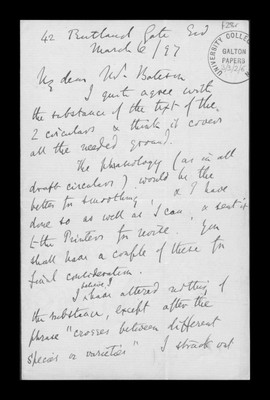 42 Rutland Gate SW
March 6/97
UNIVERSITY COLLEGE
GALTON
PAPERS
My dear Mr Bateson
I quite agree with
the substance of the text of the
2 circulars & think it covers
all the needed ground.
The phraseology (as in all
draft circulars) would be the
better for smoothing, & I have
done so as well as I can, & sent it
to the Printers for revise. You
shall have a couple of these for
final consideration.
I believe I have altered nothing of
the substance, except after the
phrase "crosses between different
species or varieties" I struck out